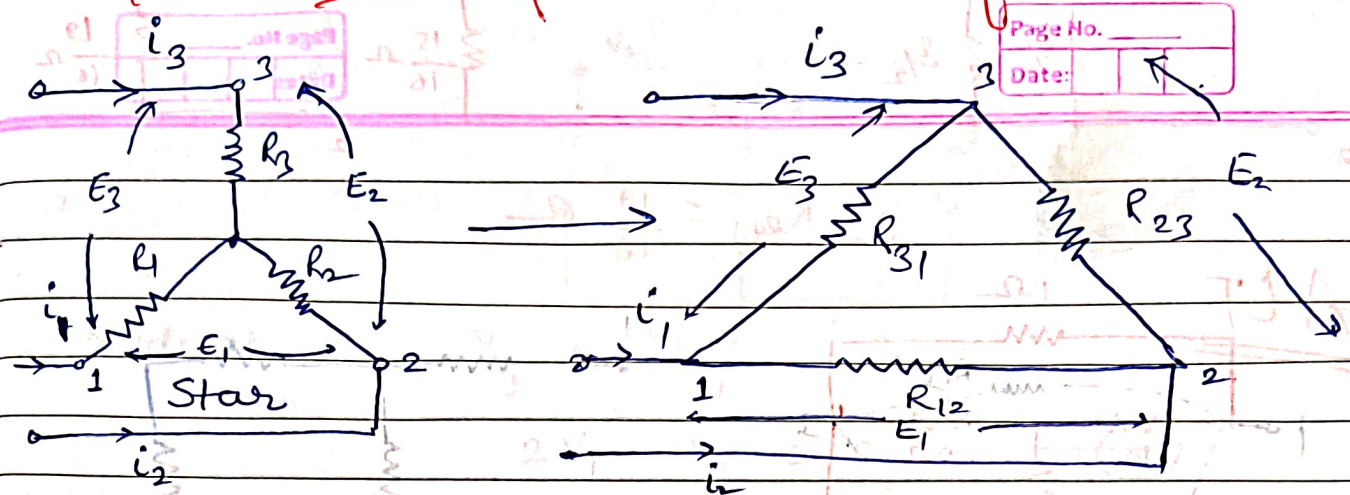 Page No.
Date:
i3
3
R3
E3
E2
R1
R2
i1
E1
1
2
Star
i2
i3
3
E3
E2
R23
R31
i1
1
2
R12
E1
i2